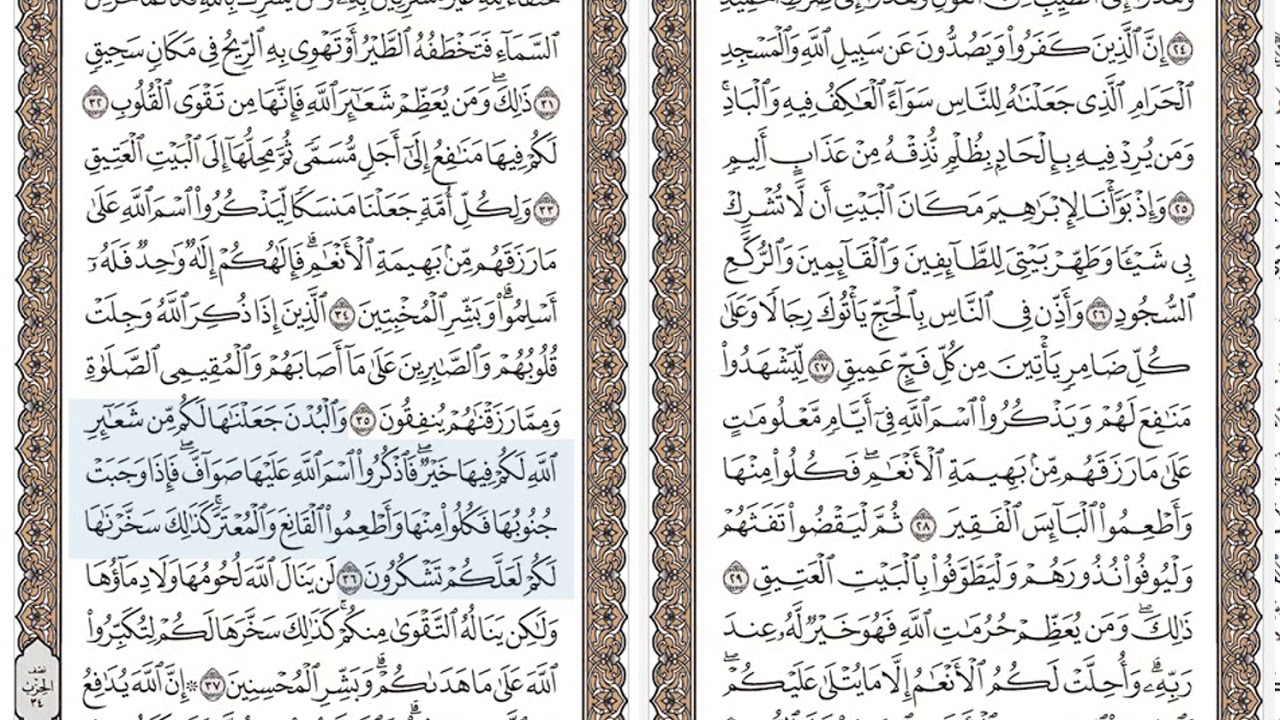 إِنَّ ٱلَّذِينَ كَفَرُوا۟ وَيَصُدُّونَ عَن سَبِيلِ ٱللَّهِ وَٱلْمَسْجِدِ
ٱلْحَرَامِ ٱلَّذِى جَعَلْنَٰهُ لِلنَّاسِ سَوَآءً ٱلْعَٰكِفُ فِيهِ وَٱلْبَادِ ۚ
وَمَن يُرِدْ فِيهِ بِإِلْحَادٍۭ بِظُلْمٍ نُّذِقْهُ مِنْ عَذَابٍ أَلِيمٍ
٢٥ وَإِذْ بَوَّأْنَا لِإِبْرَٰهِيمَ مَكَانَ ٱلْبَيْتِ أَن لَّا تُشْرِكْ
بِى شَيْـًٔا وَطَهِّرْ بَيْتِىَ لِلطَّآئِفِينَ وَٱلْقَآئِمِينَ وَٱلرُّكَّعِ
ٱلسُّجُودِ ٢٦ وَأَذِّن فِى ٱلنَّاسِ بِٱلْحَجِّ يَأْتُوكَ رِجَالًا وَعَلَىٰ
كُلِّ ضَامِرٍ يَأْتِينَ مِن كُلِّ فَجٍّ عَمِيقٍ ٢٧ لِّيَشْهَدُوا۟
مَنَٰفِعَ لَهُمْ وَيَذْكُرُوا۟ ٱسْمَ ٱللَّهِ فِىٓ أَيَّامٍ مَّعْلُومَٰتٍ
عَلَىٰ مَا رَزَقَهُم مِّنۢ بَهِيمَةِ ٱلْأَنْعَٰمِ ۖ فَكُلُوا۟ مِنْهَا
وَأَطْعِمُوا۟ ٱلْبَآئِسَ ٱلْفَقِيرَ ٢٨ ثُمَّ لْيَقْضُوا۟ تَفَثَهُمْ
وَلْيُوفُوا۟ نُذُورَهُمْ وَلْيَطَّوَّفُوا۟ بِٱلْبَيْتِ ٱلْعَتِيقِ ٢٩
ذَٰلِكَ ۖ وَمَن يُعَظِّمْ حُرُمَٰتِ ٱللَّهِ فَهُوَ خَيْرٌ لَّهُۥ عِندَ
رَبِّهِۦ ۗ وَأُحِلَّتْ لَكُمُ ٱلْأَنْعَٰمُ إِلَّا مَا يُتْلَىٰ عَلَيْكُمْ ۖ
ٱلسَّمَآءِ فَتَخْطَفُهُ ٱلطَّيْرُ أَوْ تَهْوِى بِهِ ٱلرِّيحُ فِى مَكَانٍ سَحِيقٍ
٣١ ذَٰلِكَ ۖ وَمَن يُعَظِّمْ شَعَٰٓئِرَ ٱللَّهِ فَإِنَّهَا مِن تَقْوَى ٱلْقُلُوبِ ٣٢
لَكُمْ فِيهَا مَنَٰفِعُ إِلَىٰٓ أَجَلٍ مُّسَمًّى ثُمَّ مَحِلُّهَآ إِلَى ٱلْبَيْتِ ٱلْعَتِيقِ
٣٣ وَلِكُلِّ أُمَّةٍ جَعَلْنَا مَنسَكًا لِّيَذْكُرُوا۟ ٱسْمَ ٱللَّهِ عَلَىٰ
مَا رَزَقَهُم مِّنۢ بَهِيمَةِ ٱلْأَنْعَٰمِ ۗ فَإِلَٰهُكُمْ إِلَٰهٌ وَٰحِدٌ فَلَهُۥٓ
أَسْلِمُوا۟ ۗ وَبَشِّرِ ٱلْمُخْبِتِينَ ٣٤ ٱلَّذِينَ إِذَا ذُكِرَ ٱللَّهُ وَجِلَتْ
قُلُوبُهُمْ وَٱلصَّٰبِرِينَ عَلَىٰ مَآ أَصَابَهُمْ وَٱلْمُقِيمِى ٱلصَّلَوٰةِ
وَمِمَّا رَزَقْنَٰهُمْ يُنفِقُونَ ٣٥ وَٱلْبُدْنَ جَعَلْنَٰهَا لَكُم مِّن شَعَٰٓئِرِ
ٱللَّهِ لَكُمْ فِيهَا خَيْرٌ ۖ فَٱذْكُرُوا۟ ٱسْمَ ٱللَّهِ عَلَيْهَا صَوَآفَّ ۖ فَإِذَا وَجَبَتْ
جُنُوبُهَا فَكُلُوا۟ مِنْهَا وَأَطْعِمُوا۟ ٱلْقَانِعَ وَٱلْمُعْتَرَّ ۚ كَذَٰلِكَ سَخَّرْنَٰهَا
لَكُمْ لَعَلَّكُمْ تَشْكُرُونَ ٣٦ لَن يَنَالَ ٱللَّهَ لُحُومُهَا وَلَا دِمَآؤُهَا
وَلَٰكِن يَنَالُهُ ٱلتَّقْوَىٰ مِنكُمْ ۚ كَذَٰلِكَ سَخَّرَهَا لَكُمْ لِتُكَبِّرُوا۟
ٱللَّهَ عَلَىٰ مَا هَدَىٰكُمْ ۗ وَبَشِّرِ ٱلْمُحْسِنِينَ ٣٧ ۞ إِنَّ ٱللَّهَ يُدَٰفِعُ
نصف
الحزب
٣٤